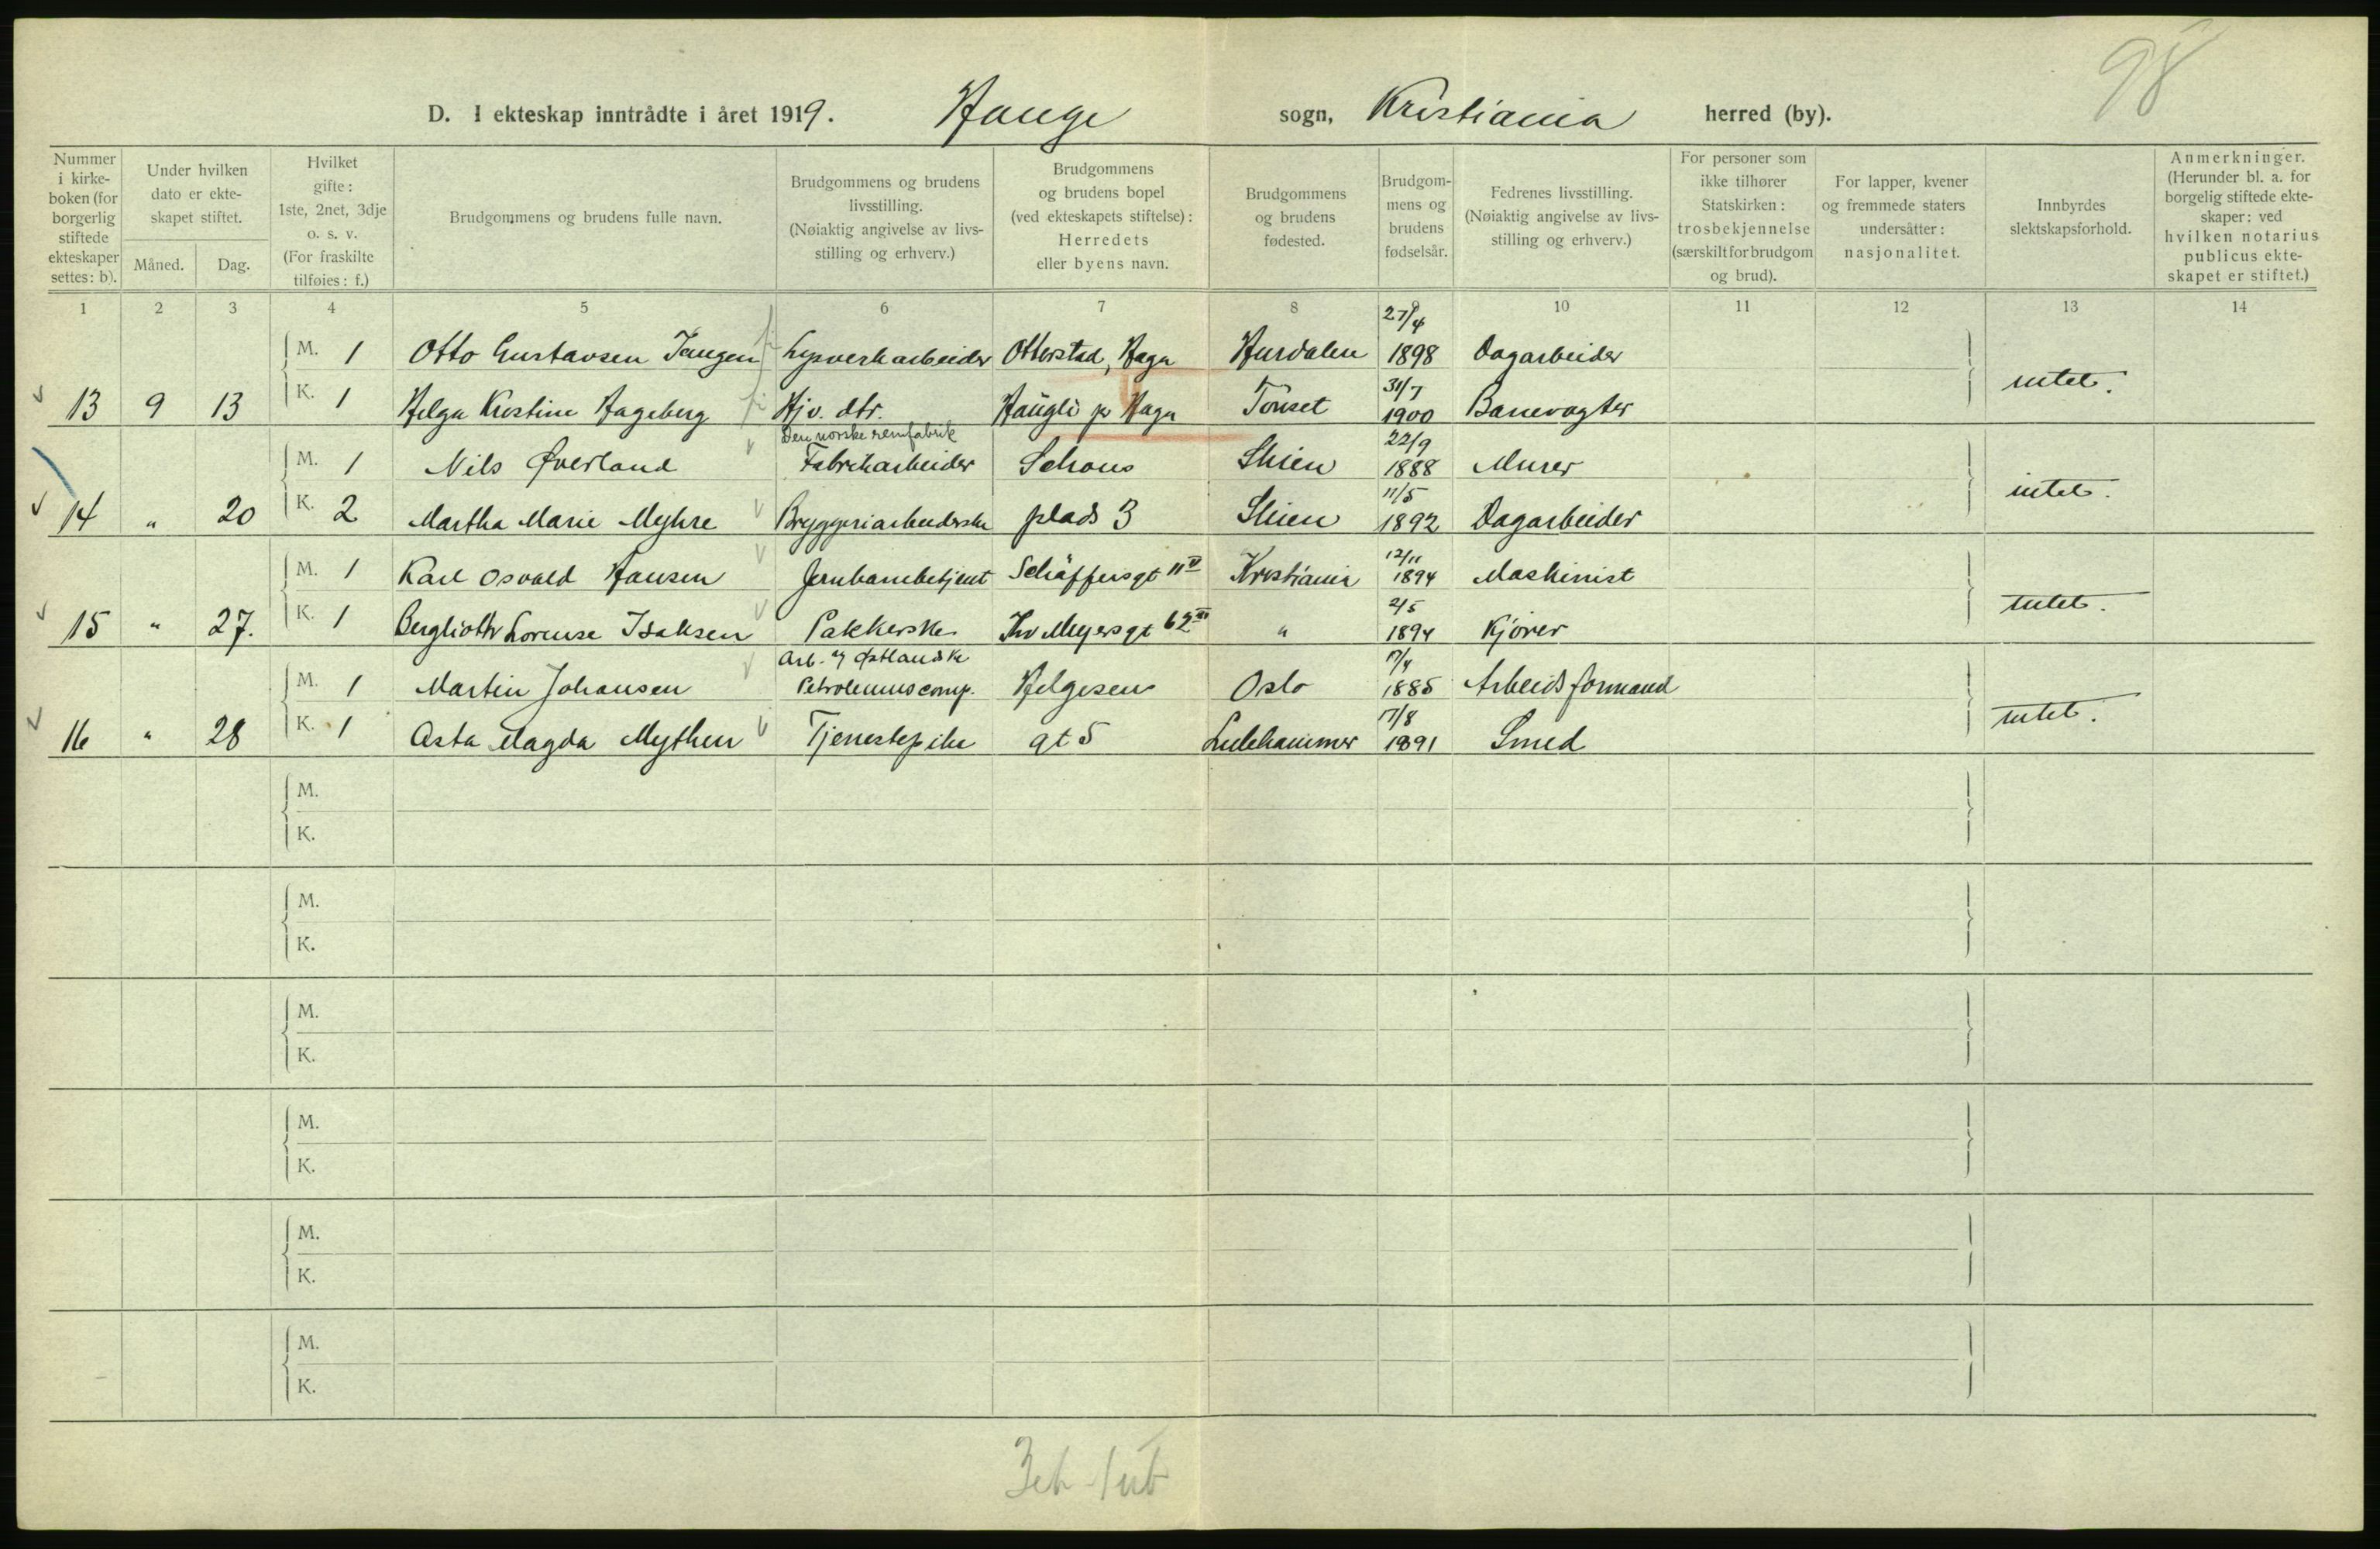 98
D. I ekteskap inntrådte i året 1919. Hauge sogn, Kristiania herred (by).
Nummer i kirkeboken (for borgerlig stiftede ekteskaper settes: b).
Under hvilken dato er ekteskapet stiftet.
Måned. Dag.
Hvilket gifte: 1ste, 2net, 3dje o. s. v. (For fraskilte tilføies: f.)
Brudgommens og brudens fulle navn.
Brudgommens og brudens livsstilling. (Nøiaktig angivelse av livsstilling og erhverv.)
Brudgommens og brudens bopel (ved ekteskapets stiftelse): Herredets eller byens navn.
Brudgommens og brudens fødested.
Brudgommens og brudens fødselsår.
Fedrenes livsstilling. (Nøiaktig angivelse av livsstilling og erhverv.)
For personer som ikke tilhører Statskirken: trosbekjennelse (særskilt for brudgom og brud).
For lapper, kvener og fremmede staters undersåtter: nasjonalitet.
Innbyrdes slektskapsforhold.
Anmerkninger. (Herunder bl. a. for borgelig stiftede ekteskaper: ved hvilken notarius publicus ekteskapet er stiftet.)
1 2 3 4 5 6 7 8 9 10 11 12 13 14
M. 1 Otto Gustavsen Tangen Lysverkarbeider Otterstad, Haga Hurdalen 27/4 1898 Dagarbeider
13 9 13 K. 1 Helga Kristine Hageberg Hjv. dtr. Haugli pr Haga Tønset 31/7 1900 Banevogter intet.
M. 1 Nils Øverland Den norske remfabrik Fabrikarbeider Schous Skien 22/9 1888 Murer
14 " 20 K. 2 Martha Marie Myhre Bryggeriarbeiderske plads 3 Skien 11/5 1892 Dagarbeider intet.
M. 1 Karl Osvald Hansen Jernbanebetjent Schäffersgt 11 IV Kristiania 12/11 1894 Maskinist
15 " 27. K. 1 Berglioth Lorense Isaksen Pakkerske Thv Meyersgt 62 III " 2/5 1894 Kjører intet.
M. 1 Martin Johansen Arb. v/ Østlandske Petroleumscomp. Helgesens Oslo 17/4 1885 Arbeidsformand
16 " 28 K. 1 Asta Magda Mythen Tjenestepike gt 5 Lillehammer 17/8 1891 Smed intet.
M.
K.
M.
K.
M.
K.
M.
K.
M.
K.
M.
K.